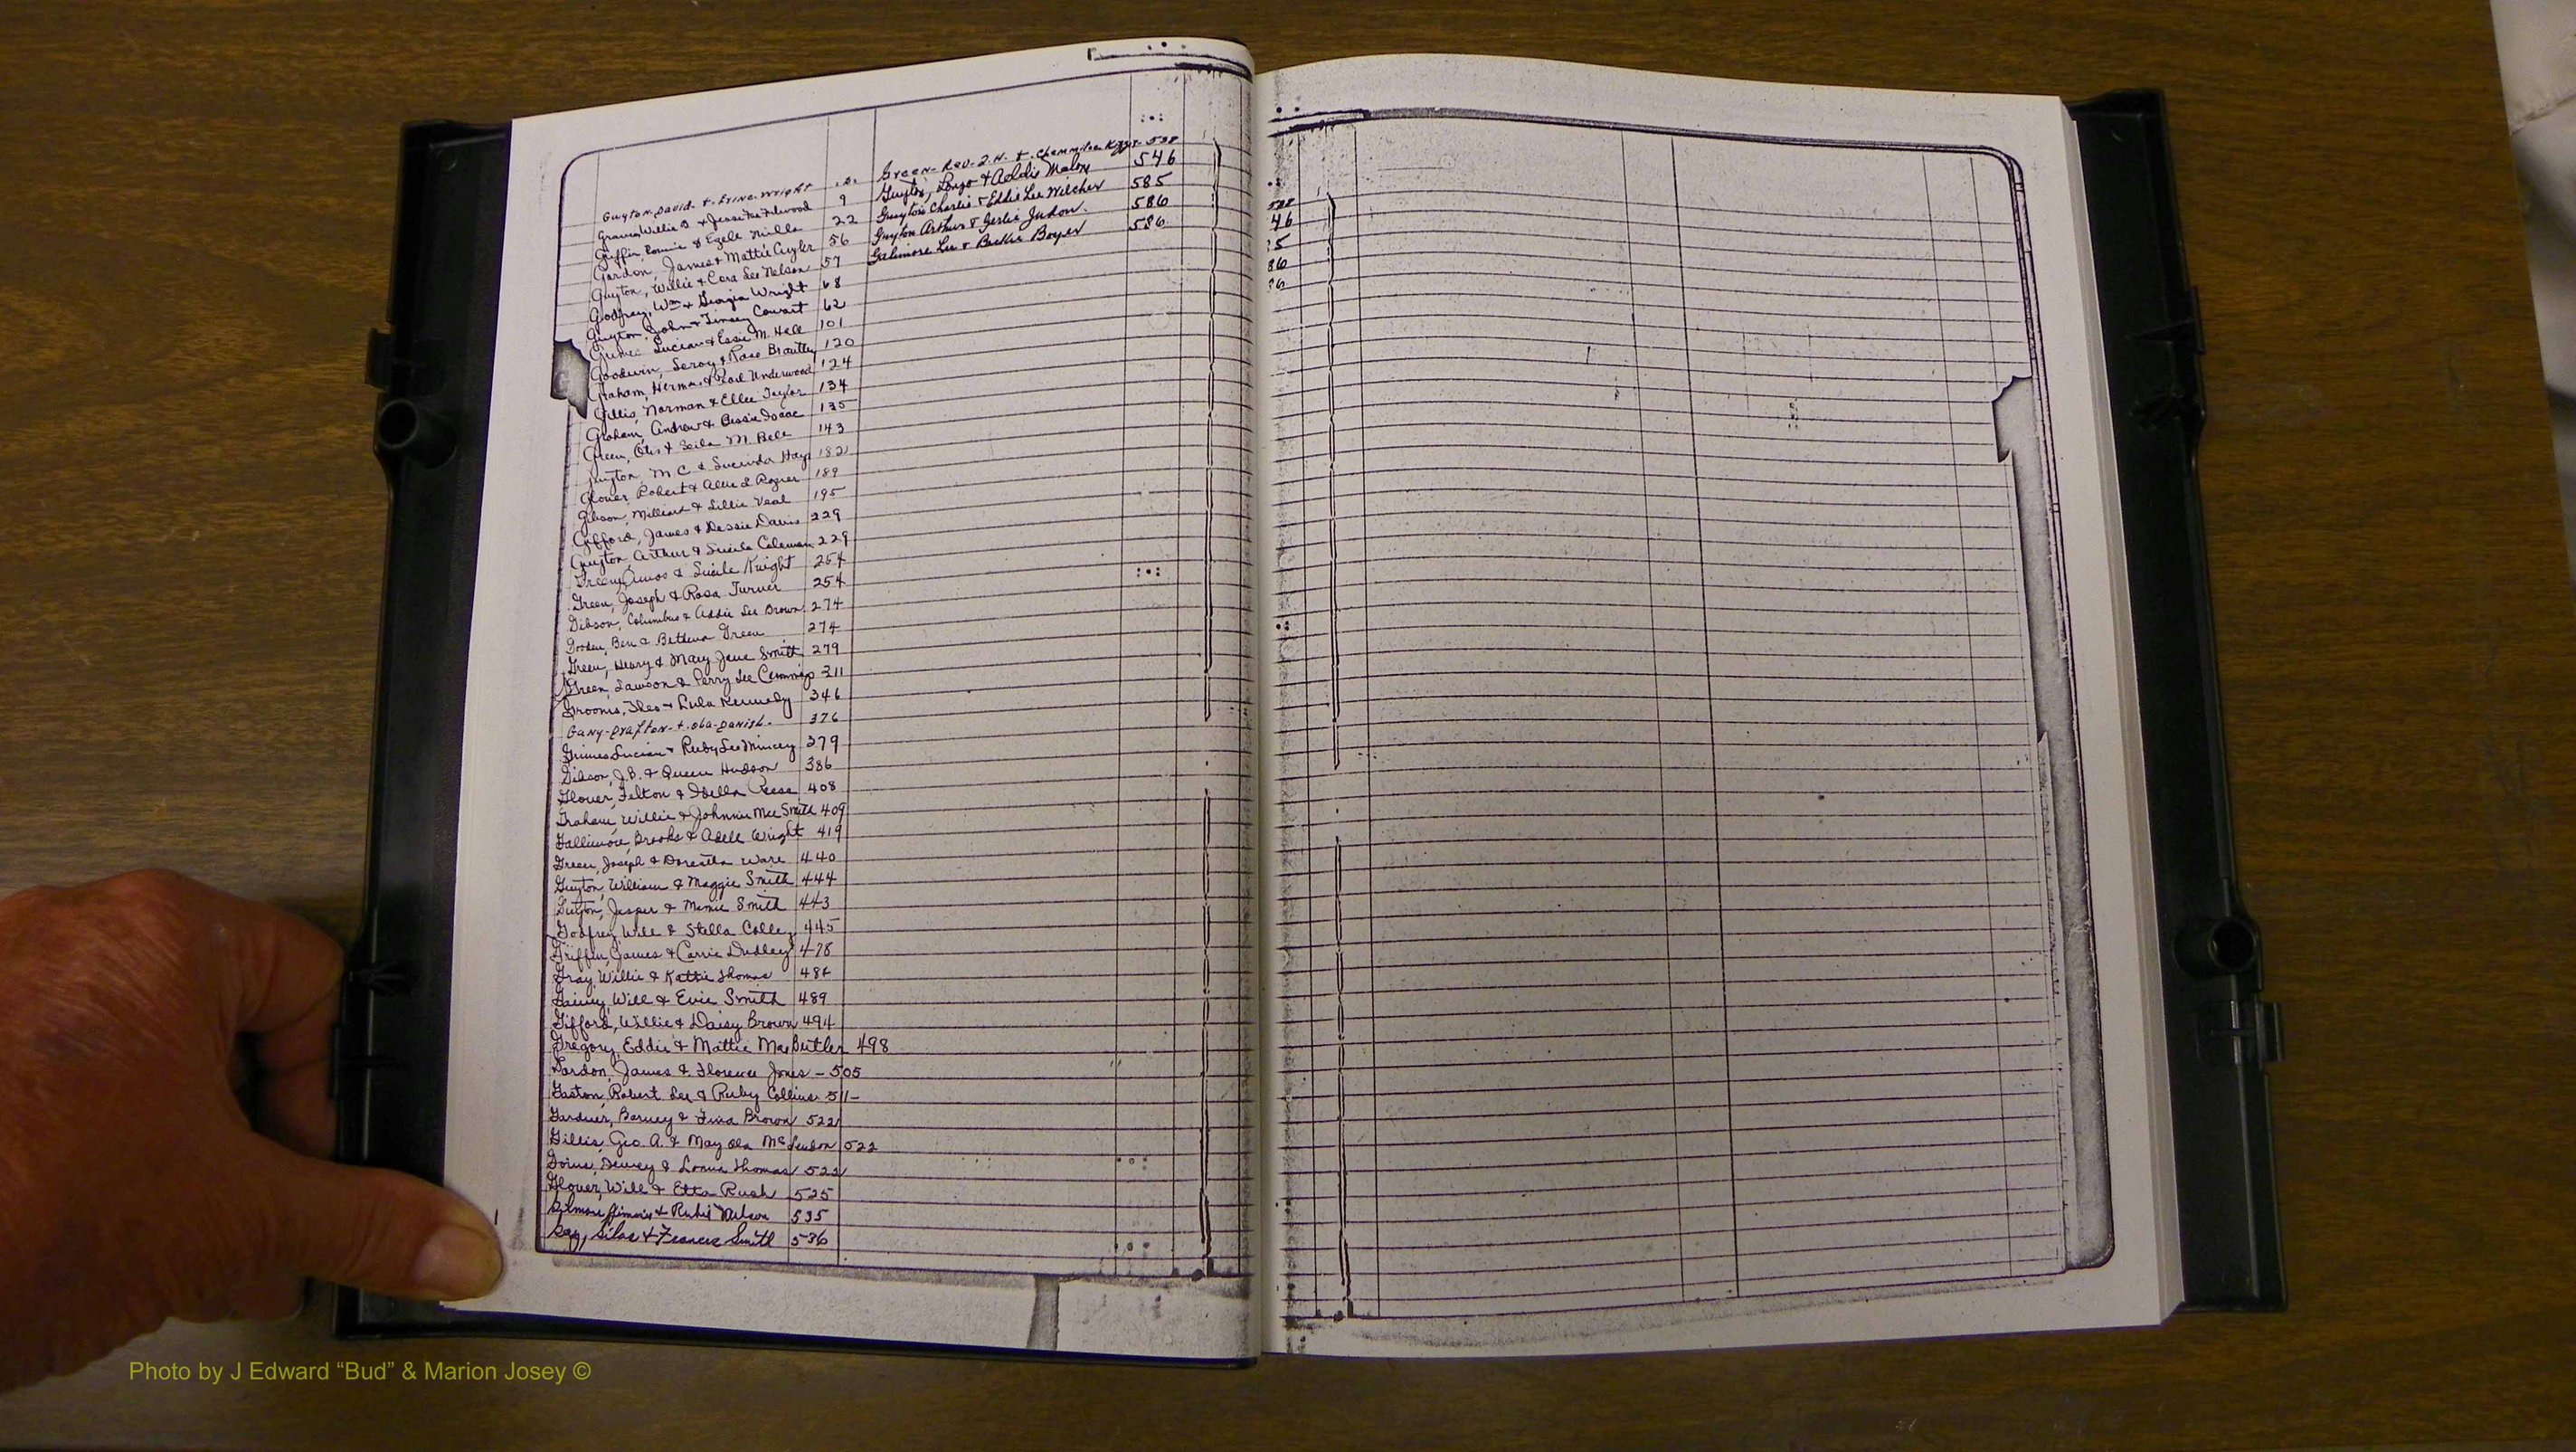 Guyton, David & Wright
Graves, Willie B & Jessie Mae 9
Griffin, & Ezell 22
Gordon, James & Mattie Cuyler 56
Guyton, Willie & Cora Lee Nelson 57
Godfrey, Wm & Georgia Wright 68
Guyton, John & Linsey Cowart 62
Lucian & Essie M. Hall 101
Goodwin, Leroy & Rosa Brantley 120
Graham, Herman & Pearl Underwood 124
Gillis, Norman & Ellie Taylor 134
Graham, Andrew & Bessie Isaac 135
Green, Otis & Leila M. Bell 143
Guyton, M C & Lucinda Hays 182
Glover, Robert & Allie L. Rozier 189
Gibson, Millard & Lillie Veal 195
Gifford, James & Dessie Davis 229
Guyton, Arthur & Lucile Coleman 229
Green, Amos & Lucile Knight 254
Green, Joseph & Rosa Turner 254
Gibson, Columbus & Addie Lee Brown 274
Gooden, Ben & Green 274
Green, Henry & Mary Jane Smith 279
Green, Lawson & Perry Lee Cummings 311
Grooms, Theo & Lula Kennedy 346
Gany-Drafton-&-Ola-Danish- 376
Grimes, Lucian & Ruby Lee Mincey 379
Gibson, J.B. & Queen Hudson 386
Glover, Felton & Idella Reese 408
Graham, Willie & Johnnie Mae Smith 409
Gallimore, Brooks & Adell Wright 419
Green, Joseph & Doretha Ware 440
Guyton, William & Maggie Smith 444
Guyton, Jasper & Mamie Smith 443
Godfrey, Will & Stella Colley 445
Griffin, James & Carrie Dudley 478
Gray, Willie & Kattie Thomas 484
Gainey, Will & Evie Smith 489
Gifford, Willie & Daisy Brown 494
Gregory, Eddie & Mattie Mae Butler 498
Gordon, James & Florence Jones - 505
Gaston, Robert Lee & Ruby Collins 511-
Gardner, Barney & Brown 522
Gillis, Geo. A. & May Ola McLendon 522
Goins, Dewey & Thomas 522
Glover, Will & Etta Rush 525
Gilmore, Jimmie & Rubie Nelson 535
Gay, Silas & Frances Smith 536
Green-Rev-J.H. & 538
Guyton, Lonzo & Addis Malon 546
Guyton Charlie & Eddie Lee Wilcher 585
Guyton Arthur & Gertie Judon 586
Galimore Lee & Boyer 586
46
86
Photo by J Edward “Bud” & Marion Josey ©